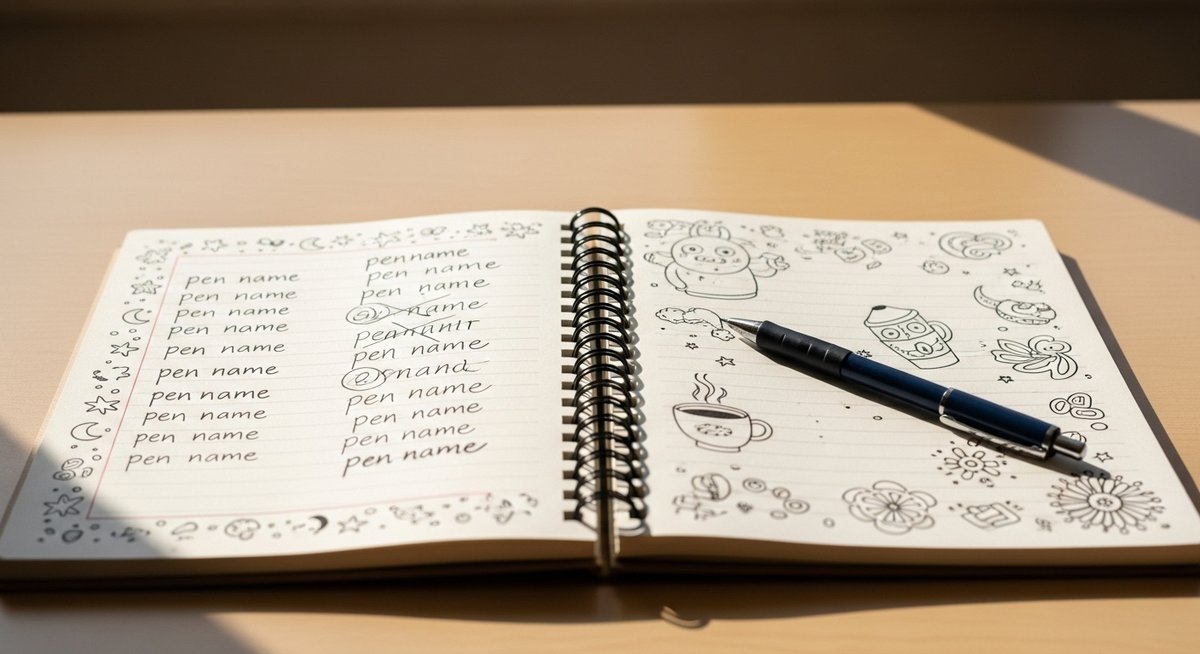 pen name
pen name
pen name
pen name
pen name
pen name
pen name
pen name
pen name
pen name
penname
pen name
pen name
name
pen name
pen name
pen name
pen name
pen name